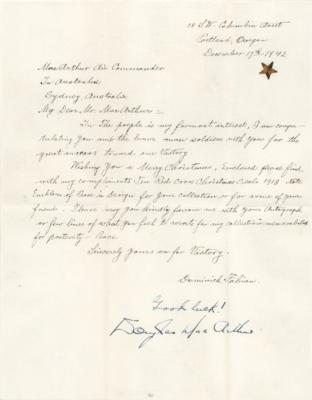 18 S.W. Columbia Street
Portland, Oregon
December 17th - 1942
Mac Arthur Air Commander
In Australia
Sydney Australia
My Dear, Mr. Mac Arthur:-
In The people is my formost interest, I am congra-
tulating you and the brave men soldiers with you for the
great success toward our Victory.
Wishing you a Merry Christmas, Enclosed please find
with my compliments Ten Red Cross Christmas Seals 1918 Note
Emblem of Peace in design for your collection, or for some of your
friend. Please may you kindly favour me with your Autograph
or few lines of what you feel to wrote for my collection memorabilia
for posterity - Peace
Sincerely yours as for Victory.
Dominick
Good luck!
Douglas MacArthur.